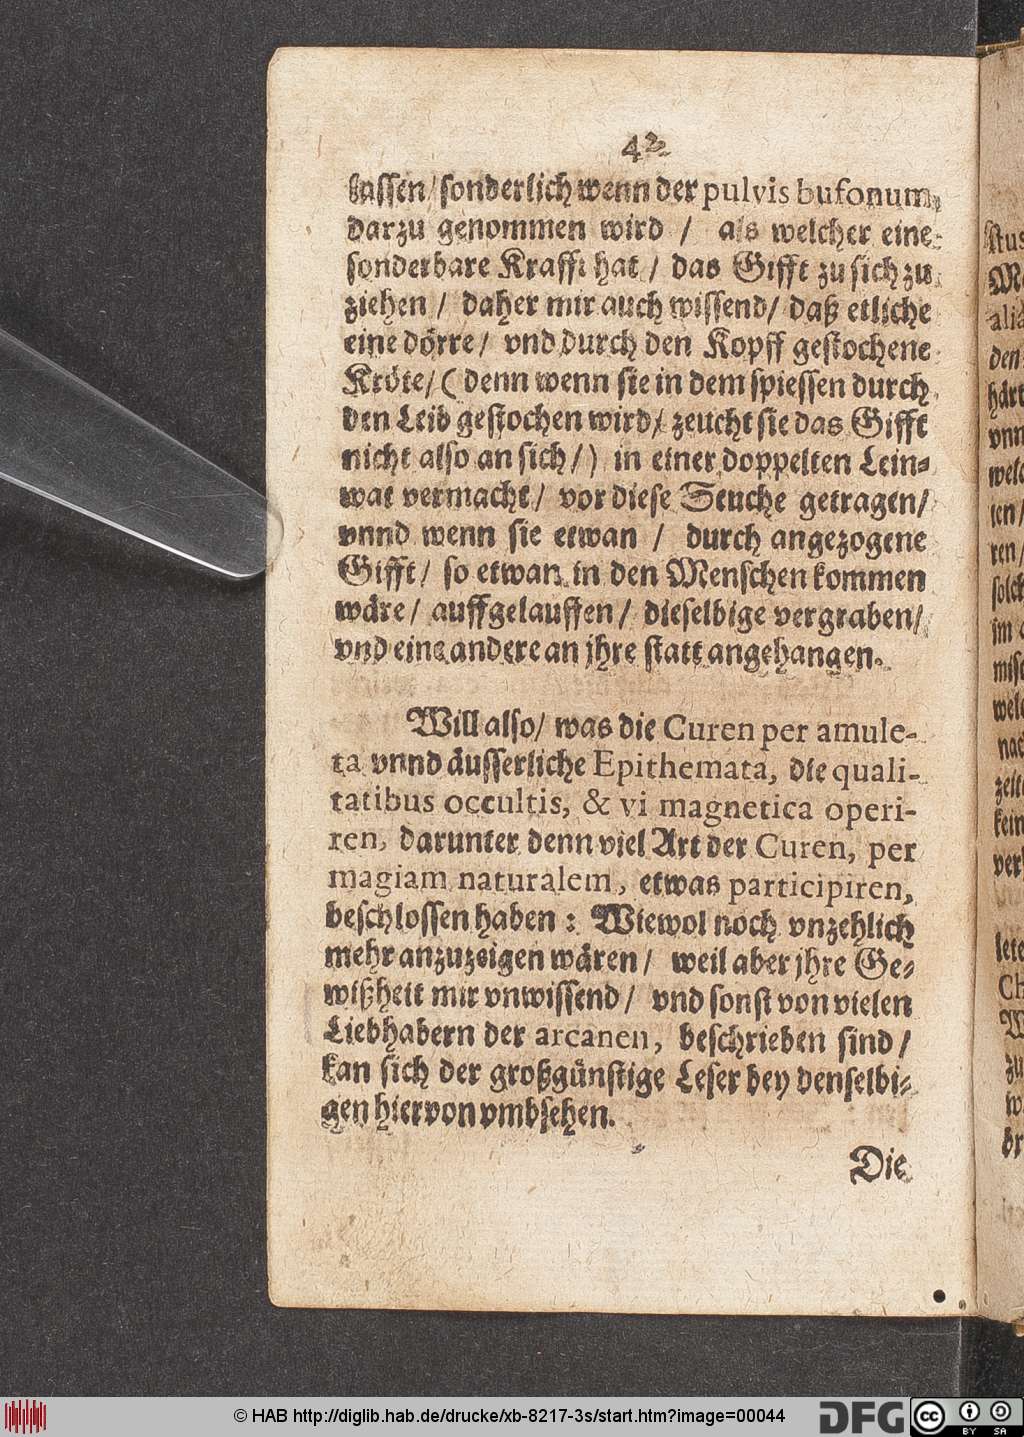 42
lassen/ sonderlich wenn der pulvis bufonum,
darzu genommen wird / als welcher eine
sonderbare Krafft hat / das Gifft zu sich zu
ziehen / daher mir auch wissend/ daß etliche
eine dörre/ vnd durch den Kopff gestochene
Kröte/ ( denn wenn sie in dem spiessen durch
den Leib gestochen wird/ zeucht sie das Gifft
nicht also an sich/) in einer doppelten Lein-
wat vermacht/ vor diese Seuche getragen/
vnnd wenn sie etwan / durch angezogene
Gifft/ so etwan in den Menschen kommen
wäre/ auffgelauffen/ dieselbige vergraben/
vnd eine andere an jhre statt angehangen.
Will also/ was die Curen per amule-
ta vnnd äusserliche Epithemata, die quali-
tatibus occultis, & vi magnetica operi-
ren, darunter denn viel Art der Curen, per
magiam naturalem, etwas participiren,
beschlossen haben : Wiewol noch vnzehlich
mehr anzuzeigen wären / weil aber jhre Ge-
wißheit mir vnwissend / vnd sonst von vielen
Liebhabern der arcanen, beschrieben sind /
kan sich der großgünstige Leser bey denselbi-
gen hiervon vmbsehen.
Die
Me
alia
den
härt
vnn
welc
ren/
solch
im
misc
welc
nac
kein
ver
lete
Ch
zu
© HAB http://diglib.hab.de/drucke/xb-8217-3s/start.htm?image=00044
DFG
cc
BY SA